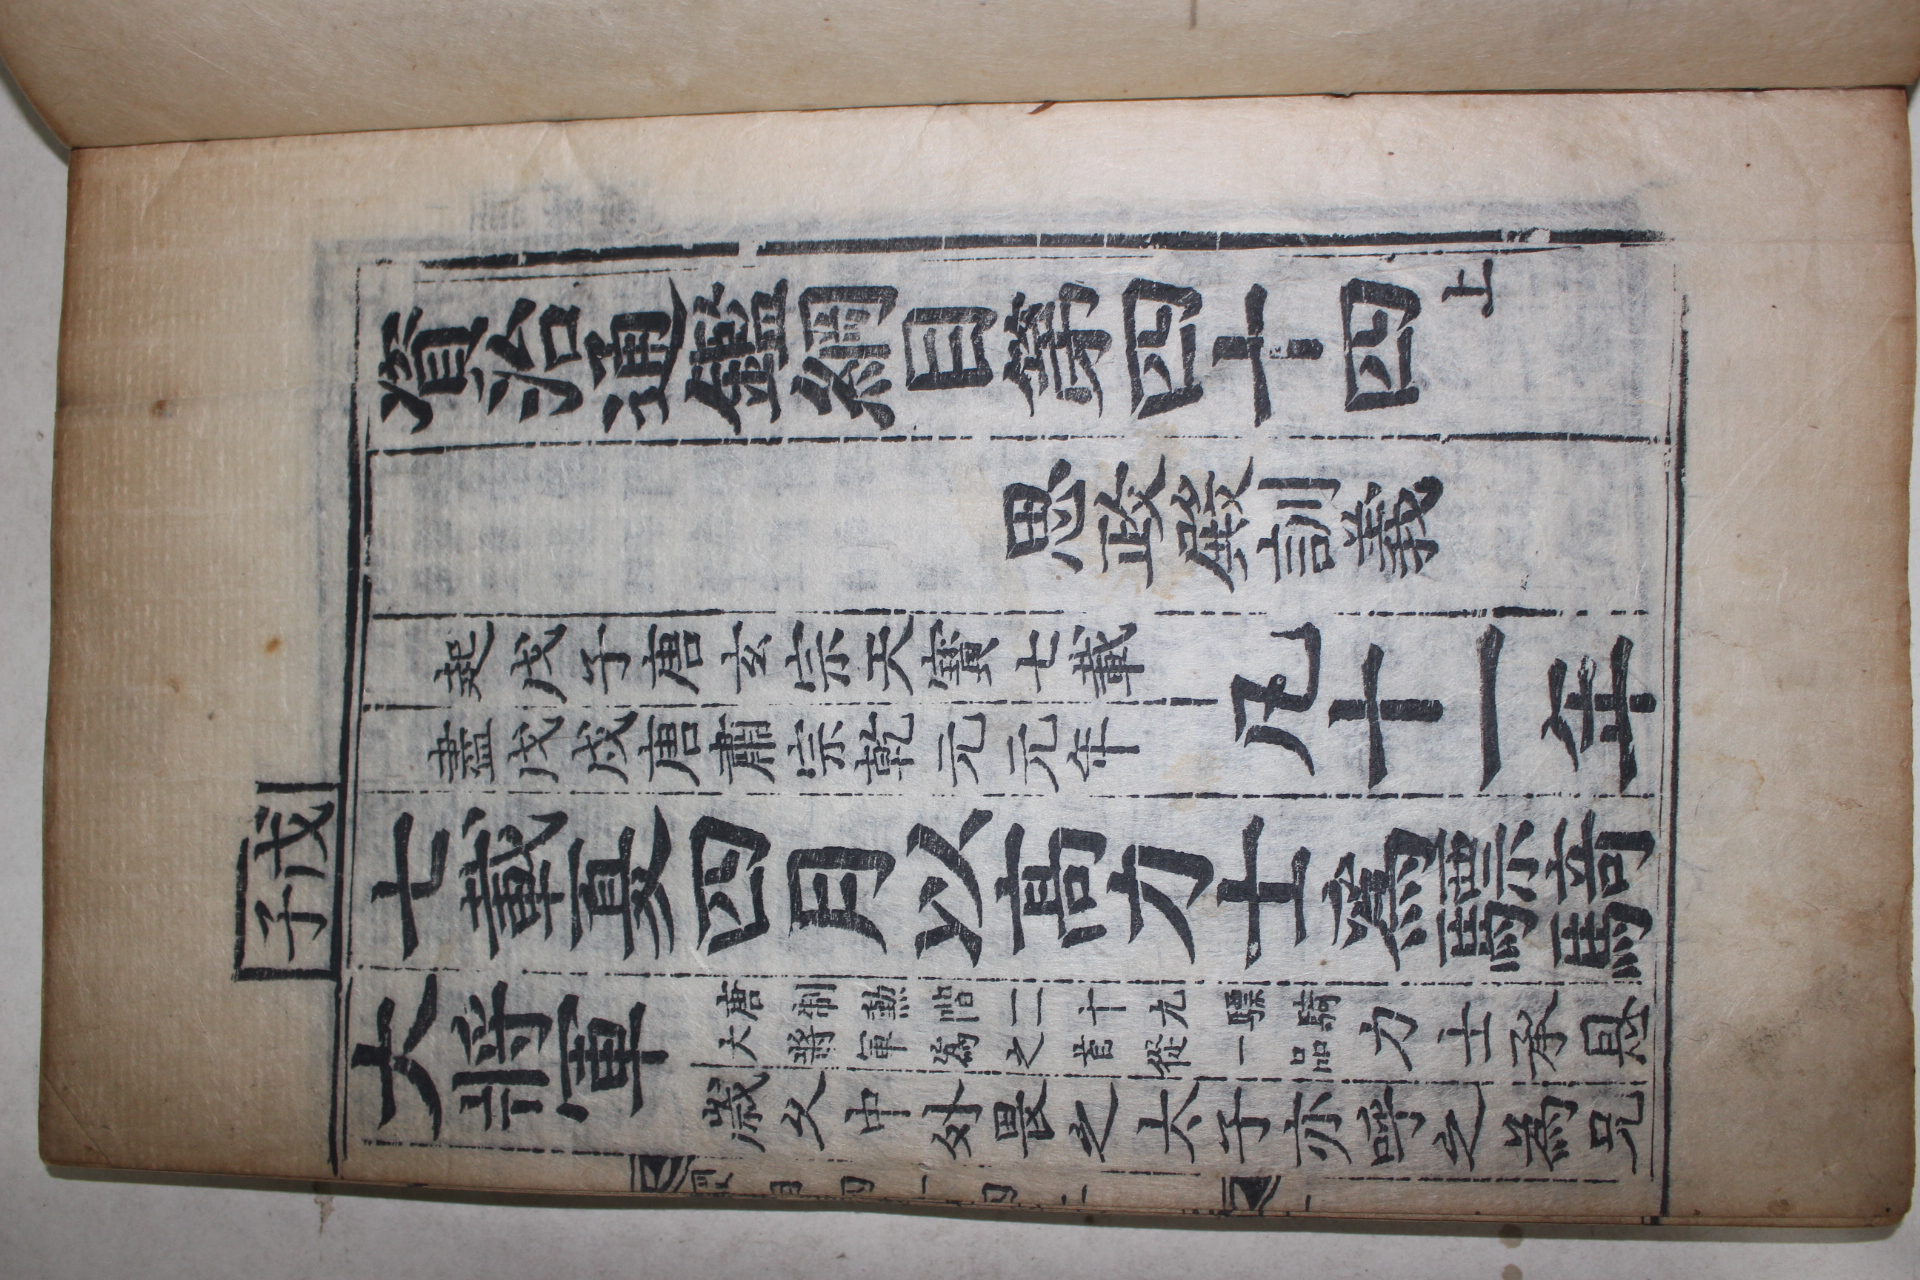 資治通鑑綱目第四十四上
思政殿訓義
起戊子唐玄宗天寶七載
盡戊戌唐肅宗乾元元年
凡十一年
戊子
七載夏四月以高力士爲驃騎
大將軍
唐制勲階二十九驃騎
大將軍爲之首從一品
力士承恩
歲久中外畏之太子亦呼之爲兄